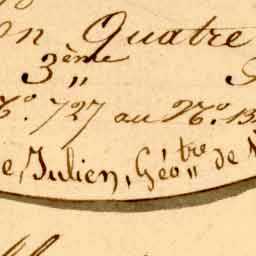 on Quatre
3ème
N°. 727 au N°. 13
e, Julien, Géotre de